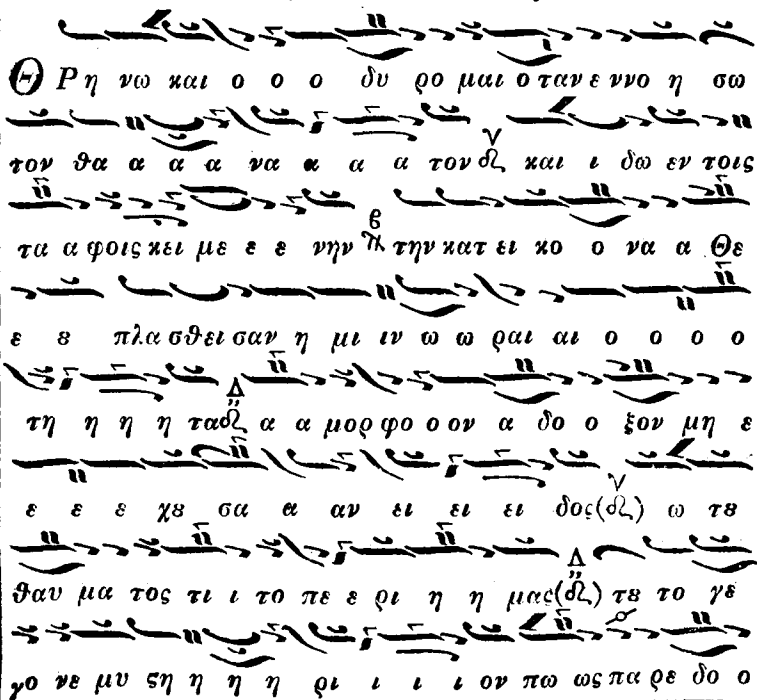 Θ Ρη νω και ο ο ο δυ ρο μαι ο ταν ε ννο η σω
τον θα α α α να α α α τον και ι δω εν τοις
τα α φοις κει με ε ε νην την κατ ει κο ο να α Θε
ε ȣ πλα σθει σαν η μι ιν ω ω ραι αι ο ο ο ο
τη η η η τα α α μορ φο ο ον α δο ο ξον μη ε
ε ε ε χȣ σα α αν ει ει ει δος () ω τȣ
θαυ μα τος τι ι το πε ε ρι η η μας () τȣ το γε
γο νε μυ ϛη η η η ρι ι ι ι ον πω ως πα ρε δο ο